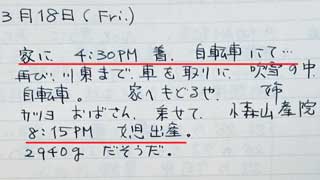 3月18日(Fri.)
家に 4:30PM 着. 自転車にて…
再び. 川東まで. 車を取りに. 吹雪の中.
自転車。 家へもどるや. 姉
カツヨ おばさん. 乗せて. 小森山産院
8:15PM 児出産。
2940g だそうだ。